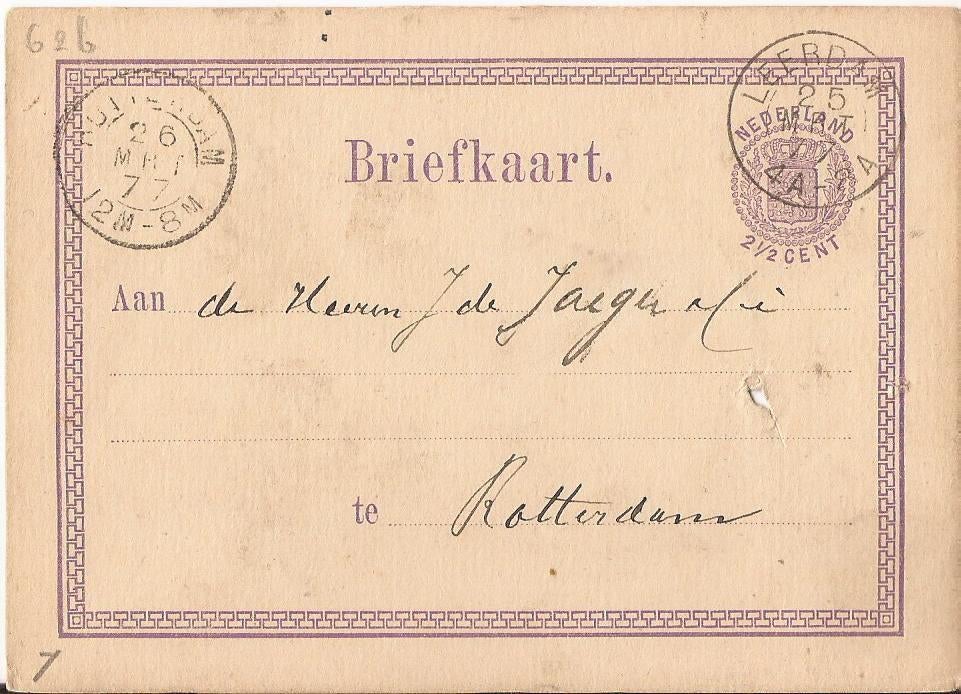 62b
ROTTERDAM
26
MRT
77
12M-8M
LEERDAM
25
MRT
77
4A-
A
NEDERLAND
2½ CENT
Briefkaart.
Aan de Heeren J de Jaeger & Cie
te Rotterdam
7